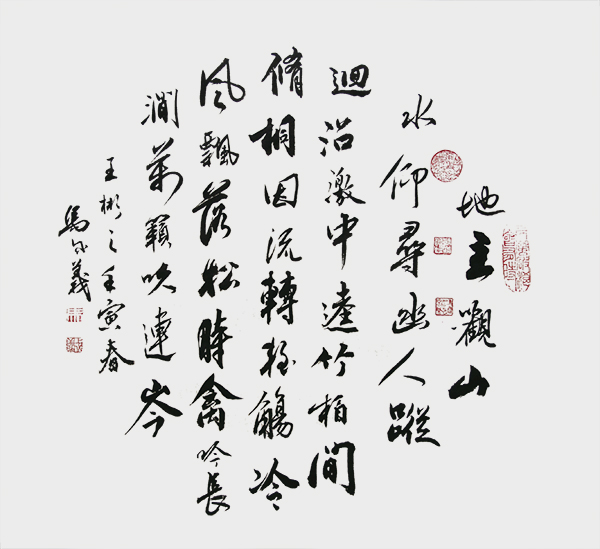 地主觀山
水仰尋幽人蹤
迴沼激中逵竹栢間
脩桐因流轉輕觴冷
風飄落松時禽吟長
澗萬籟吹連岑
王彬之壬寅春
馬義